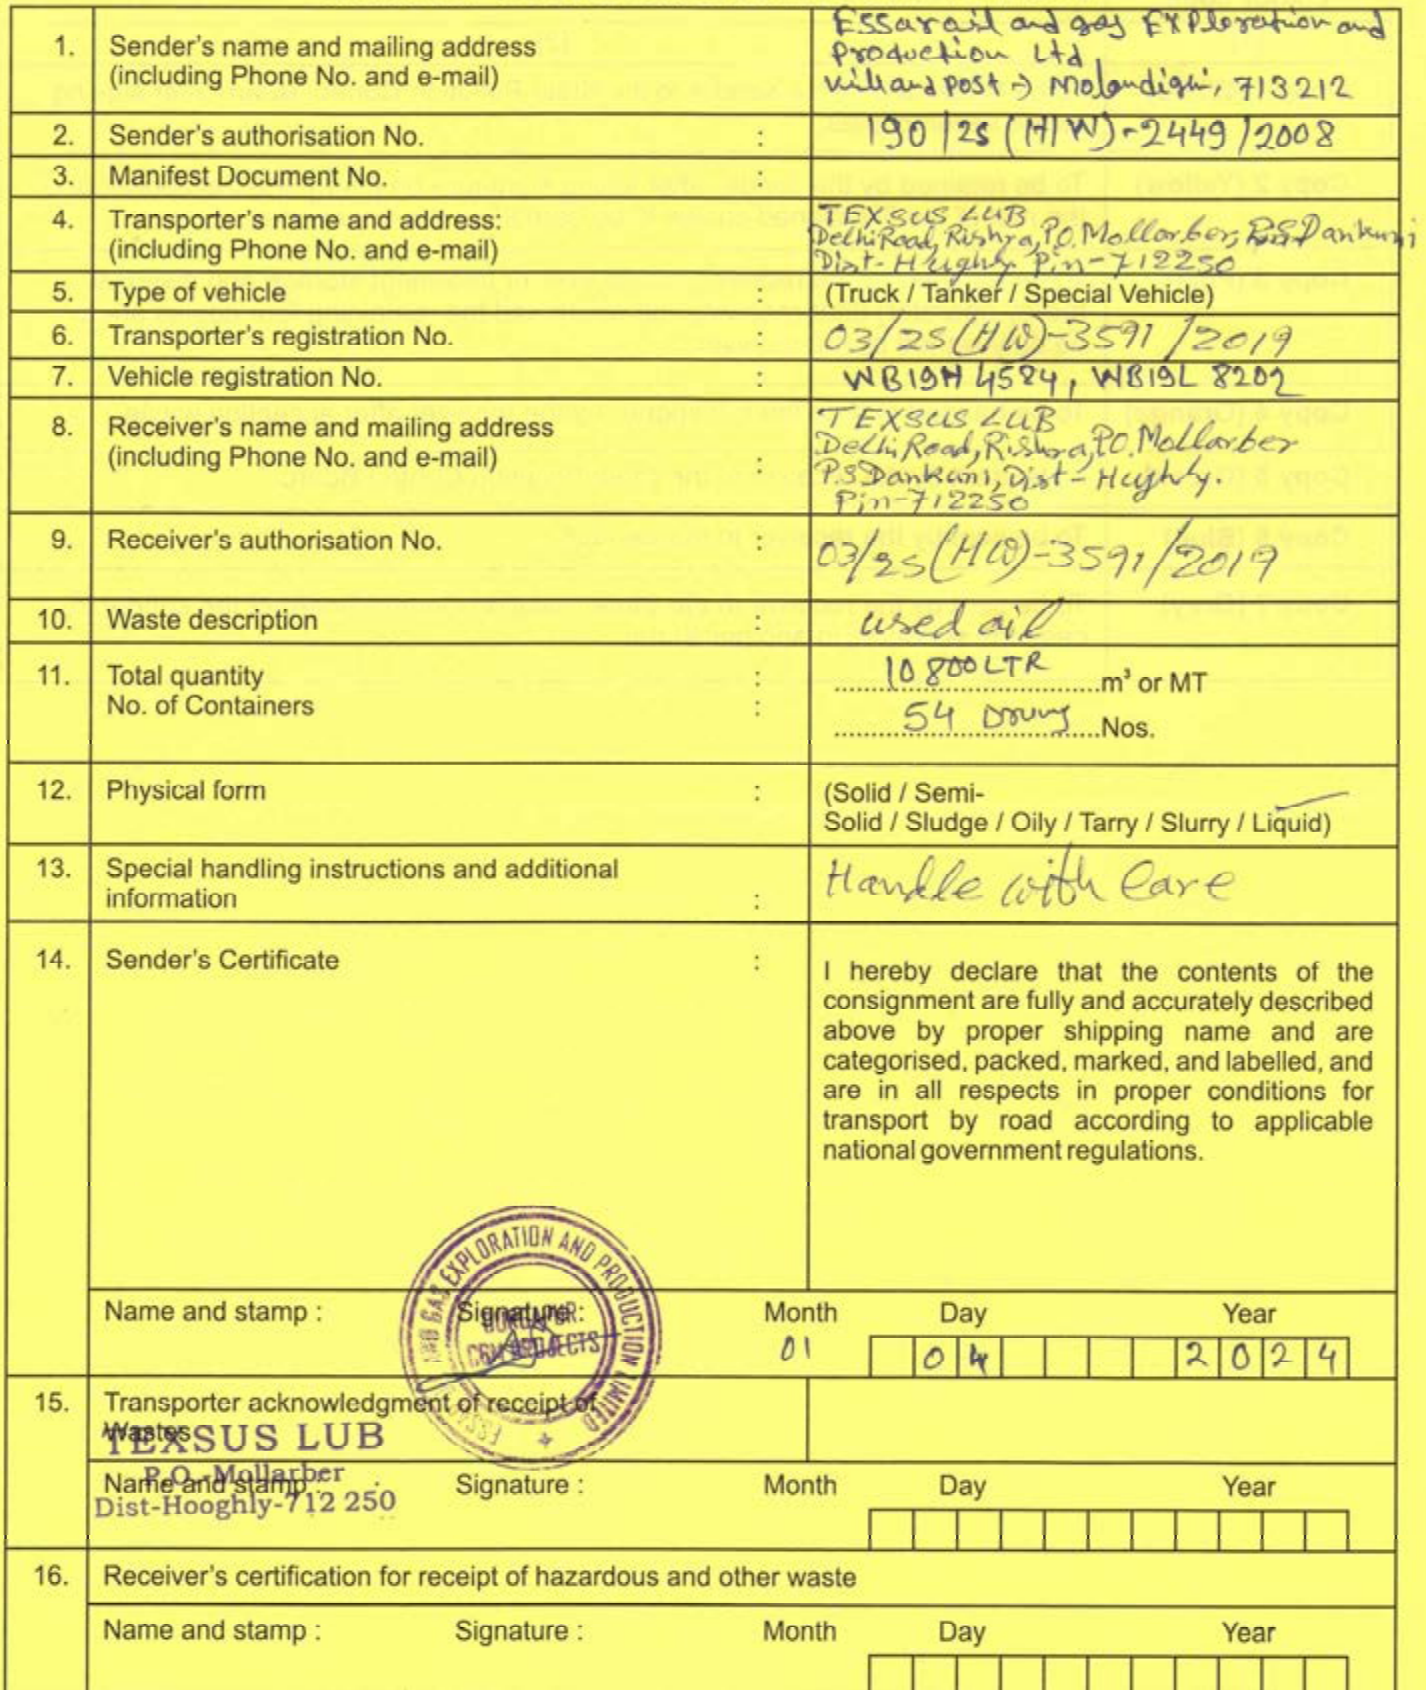 1. Sender's name and mailing address
(including Phone No. and e-mail)
Essaroil and gas EXPloration and
Production Ltd
vill and post → Molandighi, 713212
2. Sender's authorisation No. :
190/2S (H/W)-2449/2008
3. Manifest Document No. :
4. Transporter's name and address: :
(including Phone No. and e-mail)
TEXSUS LUB
Delhi Road, Rishra, P.O. Mollarber, P.S Dankuni
Dist-Hughly. Pin-712250
5. Type of vehicle : (Truck / Tanker / Special Vehicle)
6. Transporter's registration No. : 03/2S(HW)-3591/2019
7. Vehicle registration No. : WB19H 4584, WB19L 8202
8. Receiver's name and mailing address
(including Phone No. and e-mail) :
TEXSUS LUB
Delhi Road, Rishra, P.O. Mollarber
P.S Dankuni, Dist-Hughly.
Pin-712250
9. Receiver's authorisation No. :
03/2S(HW)-3591/2019
10. Waste description : used oil
11. Total quantity : 10800LTR m³ or MT
No. of Containers : 54 Drums Nos.
12. Physical form : (Solid / Semi-
Solid / Sludge / Oily / Tarry / Slurry / Liquid)
13. Special handling instructions and additional
information :
Handle with Care
14. Sender's Certificate :
I hereby declare that the contents of the
consignment are fully and accurately described
above by proper shipping name and are
categorised, packed, marked, and labelled, and
are in all respects in proper conditions for
transport by road according to applicable
national government regulations.
AND GAS EXPLORATION AND PRODUCTION LIMITED
DURGAPUR
CBM PROJECTS
Name and stamp : Signature : Month Day Year
01 04 2024
15. Transporter acknowledgment of receipt of
Wastes
TEXSUS LUB
P.O.-Mollarber
Dist-Hooghly-712 250
Name and stamp : Signature : Month Day Year
16. Receiver's certification for receipt of hazardous and other waste
Name and stamp : Signature : Month Day Year